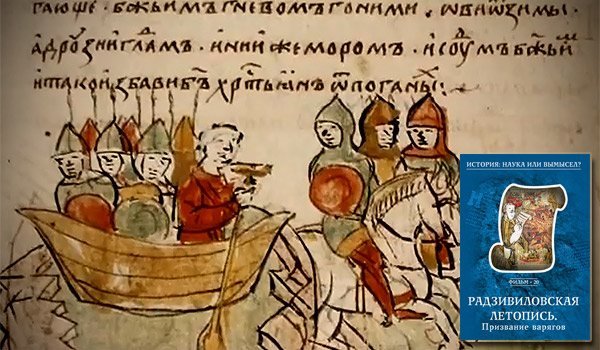 гающе · бж҃ьимъ гнѣвомъ гоними · ѡви ѿ зимы ·
а дрѹзии глаⷣмъ · инии же моромъ · и сѹⷣмъ бж҃ьи
и тако избави бг҃ъ хрⷭ҇тьꙗнъ ѿ поганыⷯ :
ИСТОРИЯ: НАУКА ИЛИ ВЫМЫСЕЛ?
ФИЛЬМ - 20
РАДЗИВИЛОВСКАЯ
ЛЕТОПИСЬ.
Призвание варягов